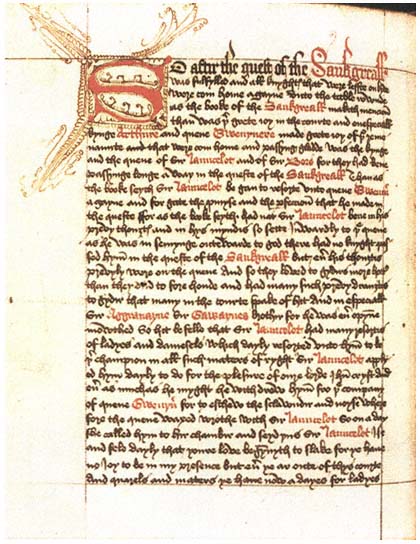 So aftir the quest of the Sankgreall
was fulfylled and all knyghtꝭ that were leffte on lyve
were com home agayne vnto the table rounde
as the booke of the Sankgreall makith mencion
than was þer grete ioy in the courte and enespeciall
kynge Arthure and quene Gwenyvere made grete ioy of þe reme
naunte that were com home and passyng gladde was the kynge
and the quene of sir Launcelot and of sir Bors for they had bene
passynge longe a way in the queste of the Sankgreall Than as
the booke seyth Sir Launcelot be gan to resorte vnto quene Gwenyver
a gayne and for gate the promyse and the pfeccion that he made in
the queste ffor as the booke seyth had nat Sir Launcelot bene in his
prevy thoughtꝭ and in hys myndis so sette Inwardly to þe quene
as he was in semynge outewarde to god there had no knyght pas
sed hym in the queste of the Sankgreall but eu his thoughtis
prevyly were on the quene And so they loved to gydirs more hotter
than they dud to fore honde and had many such prevy draughtis
to gydir that many in the courte spake of hit And in especiall
Sir Aggravayne Sir Gawaynes brothir for he was eu opyne
mowthed So hit befelle that Sir Launcelot had many resortis
of ladyes and damesels which dayly resorted vnto hym to be
þer champion in all such maters of ryght Sir Launcelot apply
ed hym dayly to do for the plesure of oure lorde Ihu cryst And
eu as much as he myght he withdrew hym fro þe company
of quene Gwenyver for to eschew the sclawndir and noyse where
fore the quene waxed wrothe with Sir Launcelot So on a day
she called hym to hir chambir and seyd þus Sir Launcelot I se
and fele dayly that youre love begynnyth to slake for ye have
no Ioy to be in my presence but eu ye ar oute of thys courte
And quarels and maters ye have now a dayes for ladyes